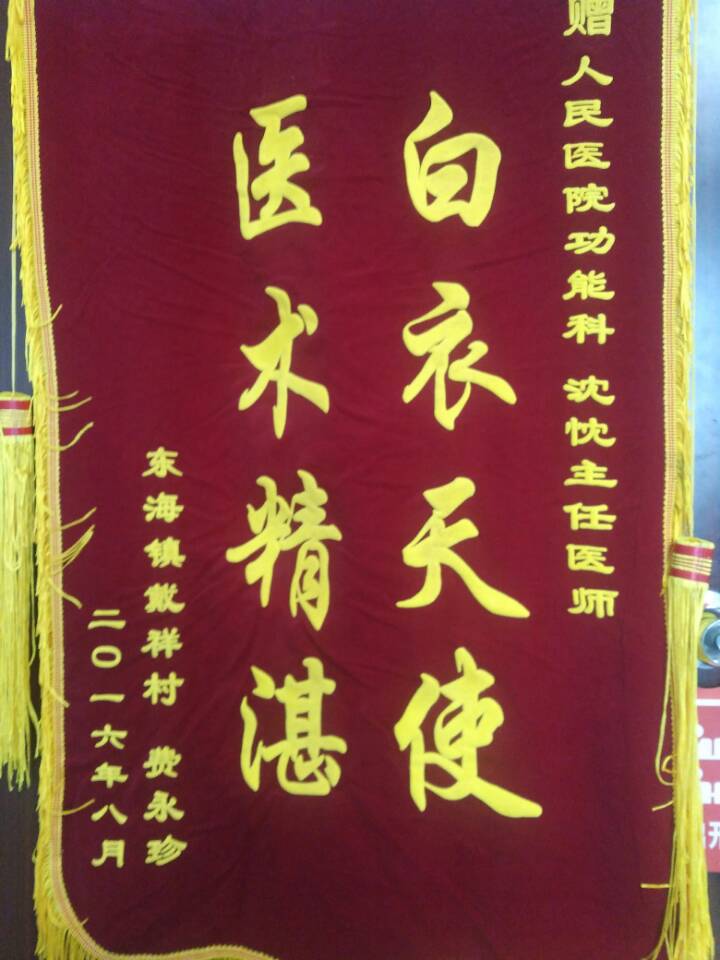 赠人民医院功能科 沈忱主任医师
白衣天使
医术精湛
东海镇戴祥村 费永珍
二〇一六年八月